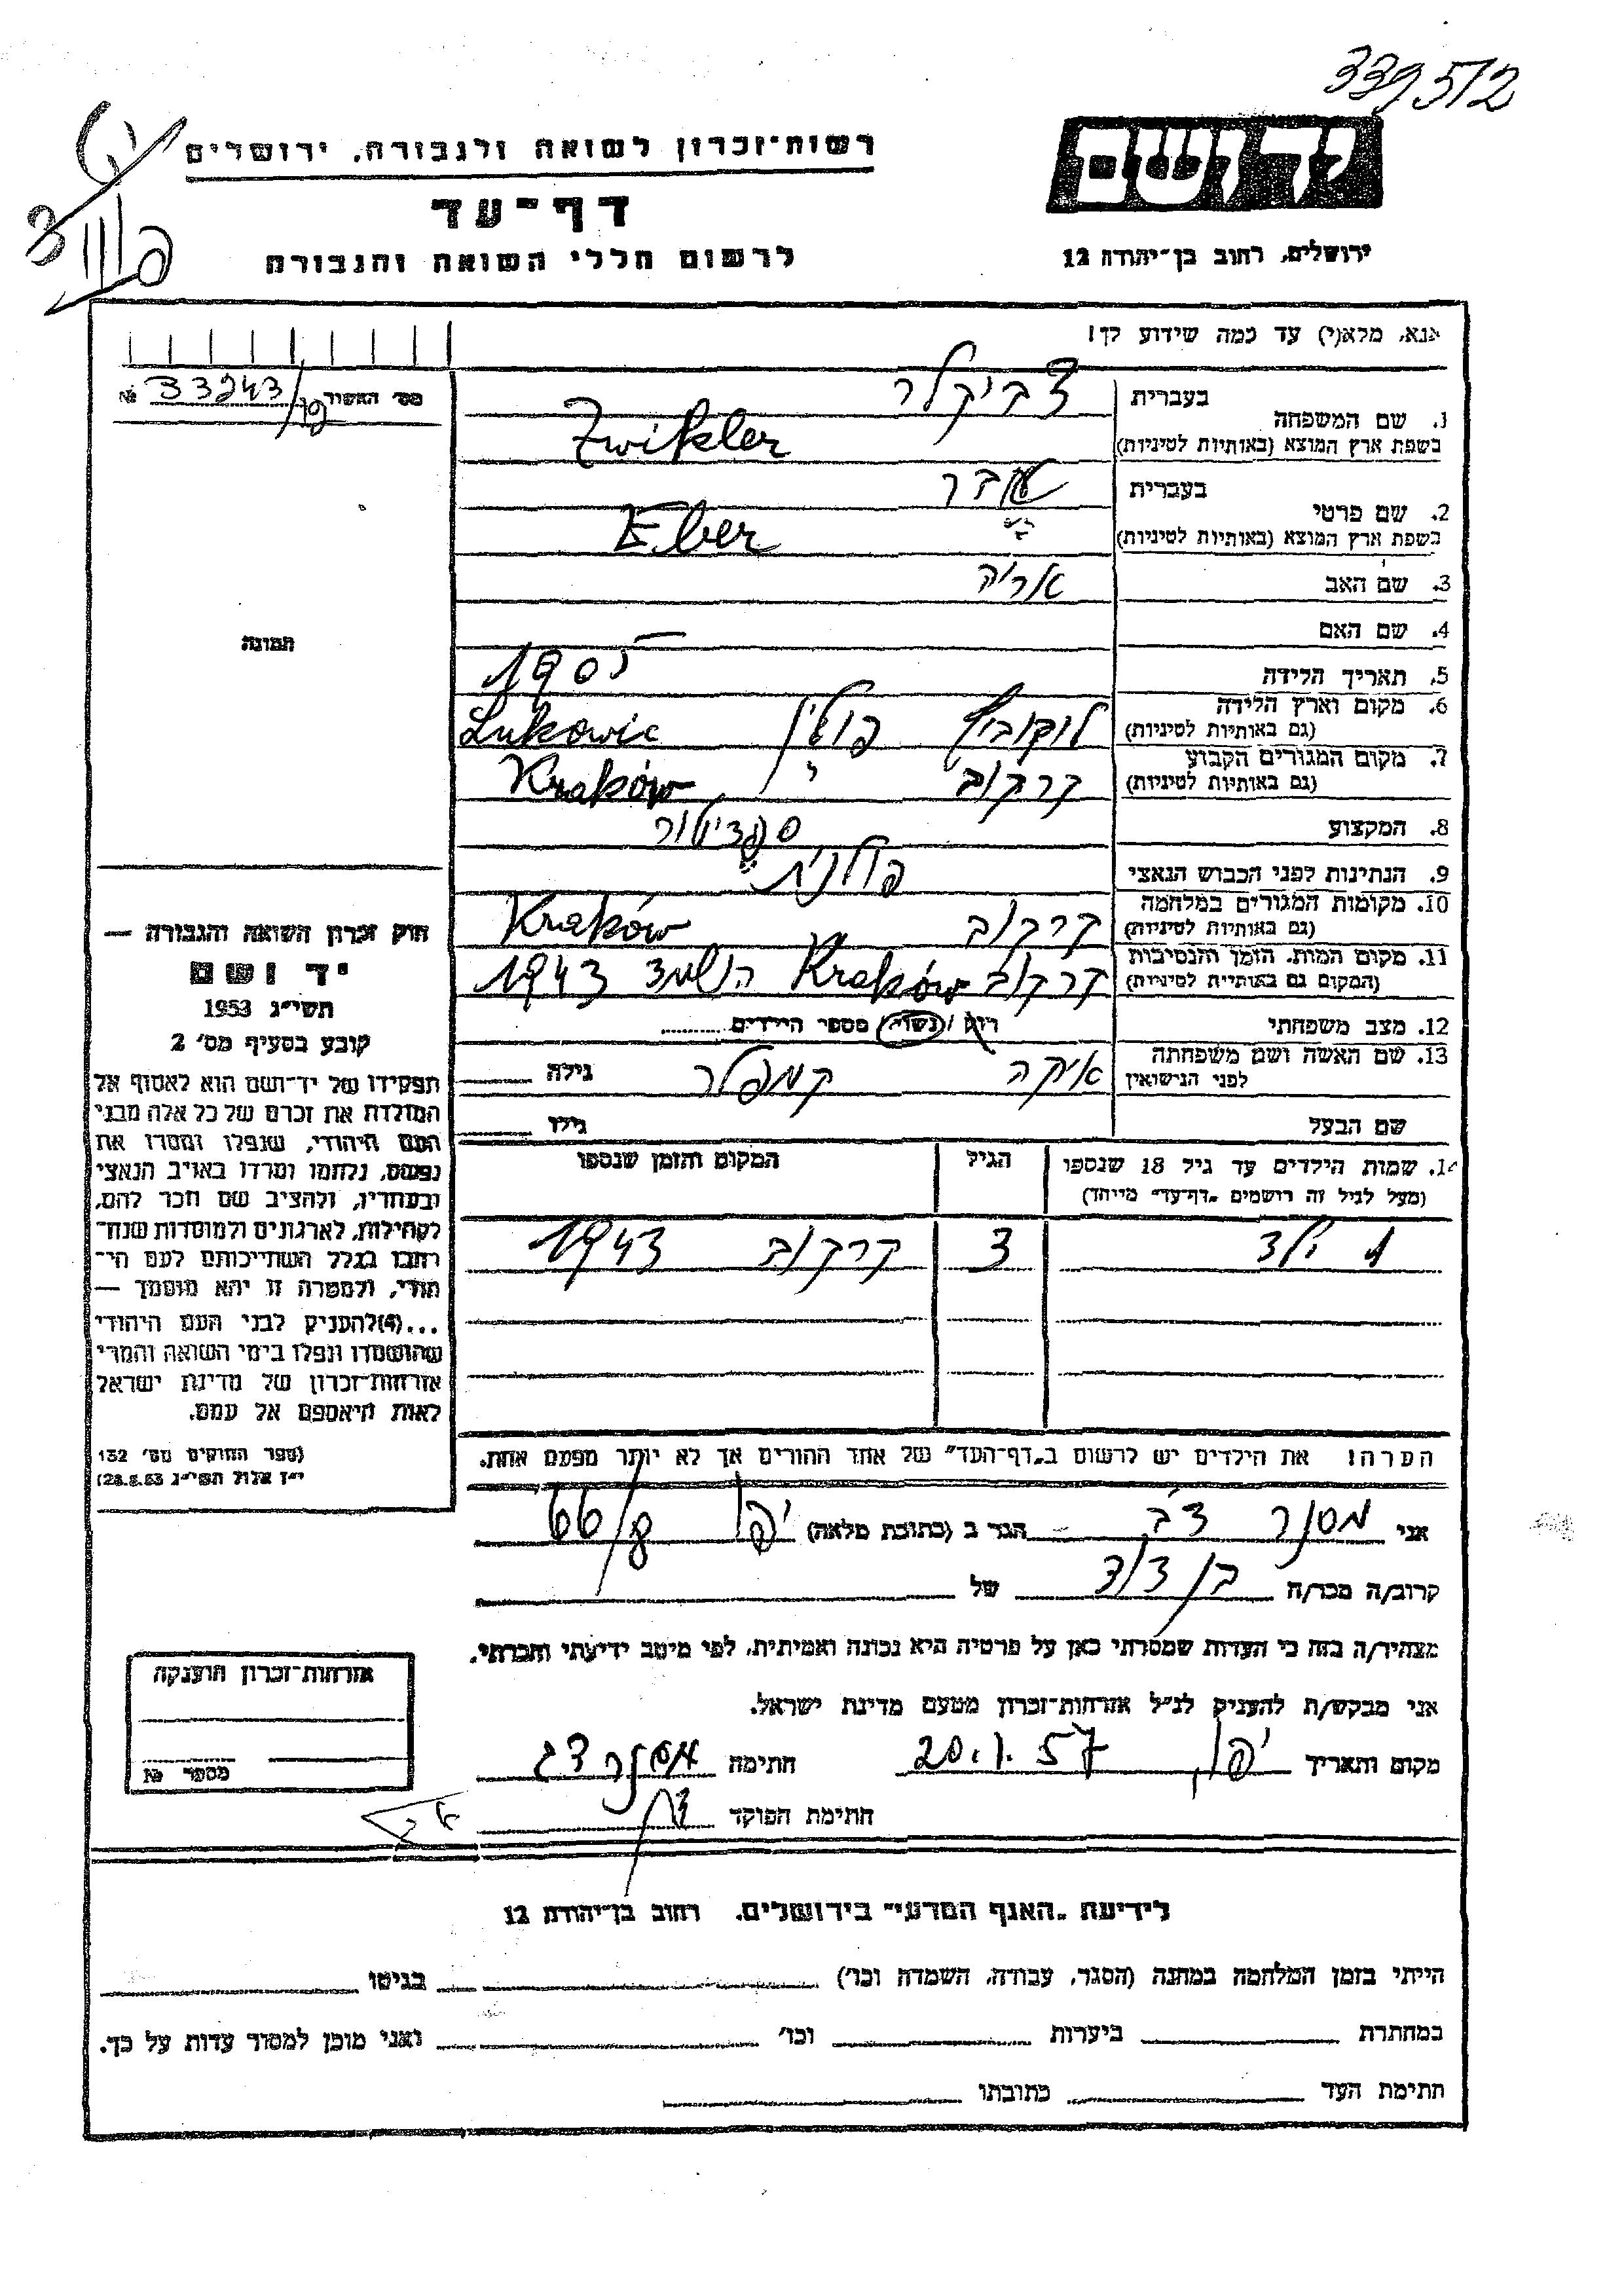 339512
יד ושם
ירושלים, רחוב בן-יהודה 12
רשות-זכרון לשואה ולגבורה, ירושלים
דף-עד
לרשום חללי השואה והגבורה
אנא, מלא(י) עד כמה שידוע לך!
מס' האשור 33243 №
1. שם המשפחה
בעברית צביקלר
בשפת ארץ המוצא (באותיות לטיניות) Zwikler
2. שם פרטי
בעברית עבר
בשפת ארץ המוצא (באותיות לטיניות) Eber
3. שם האב אריה
4. שם האם
5. תאריך הלידה 1905
6. מקום וארץ הלידה
(גם באותיות לטיניות) לוקוביץ פולין Lukowic
7. מקום המגורים הקבוע
(גם באותיות לטיניות) קרקוב Kraków
8. המקצוע ספדיטור
9. הנתינות לפני הכבוש הנאצי פולנית
10. מקומות המגורים במלחמה
(גם באותיות לטיניות) קרקוב Kraków
11. מקום המות, הזמן והנסיבות
(המקום גם באותיות לטיניות) קרקוב Kraków הושמד 1943
12. מצב משפחתי רוק/נשוי מספר הילדים
13. שם האשה ושם משפחתה
לפני הנישואין אי​קה קמפלר גילה
שם הבעל גילו
14. שמות הילדים עד גיל 18 שנספו
(מעל לגיל זה רושמים "דף-עד" מיוחד)
הגיל
המקום והזמן שנספו
1 ילד 3 קרקוב 1943
הערה: את הילדים יש לרשום ב"דף-העד" של אחד ההורים אך לא יותר מפעם אחת.
תמונה
חוק זכרון השואה והגבורה —
יד ושם
תשי"ג 1953
קובע בסעיף מס' 2
תפקידו של יד-ושם הוא לאסוף אל
המולדת את זכרם של כל אלה מבני
העם היהודי, שנפלו ומסרו את
נפשם, נלחמו ומרדו באויב הנאצי
ובעוזריו, ולהציב שם וזכר להם,
לקהילות, לארגונים ולמוסדות שנח-
רבו בגלל השתייכותם לעם הי-
הודי, ולמטרה זו יהא מוסמך —
...(4)להעניק לבני העם היהודי
שהושמדו ונפלו בימי השואה והמרי
אזרחות-זכרון של מדינת ישראל
לאות היאספם אל עמם.
(ספר החוקים מס' 132
י"ז אלול תשי"ג 28.8.53)
אני מסנר צבי הגר ב (כתובת מלאה) יפו 66/8
קרוב/ה מכר/ה בן דוד של
מצהיר/ה בזה כי העדות שמסרתי כאן על פרטיה היא נכונה ואמיתית, לפי מיטב ידיעתי והכרתי.
אני מבקש/ת להעניק לנ"ל אזרחות-זכרון מטעם מדינת ישראל.
מקום ותאריך יפו, 20.1.57 חתימה מסנר צבי
חתימת הפוקד
אזרחות-זכרון הוענקה
מספר №
לידיעת "האגף המדעי" בירושלים, רחוב בן-יהודה 12
הייתי בזמן המלחמה במחנה (הסגר, עבודה, השמדה וכו') בגיטו
במחתרת ביערות וכו' ואני מוכן למסור עדות על כך.
חתימת העד כתובתו